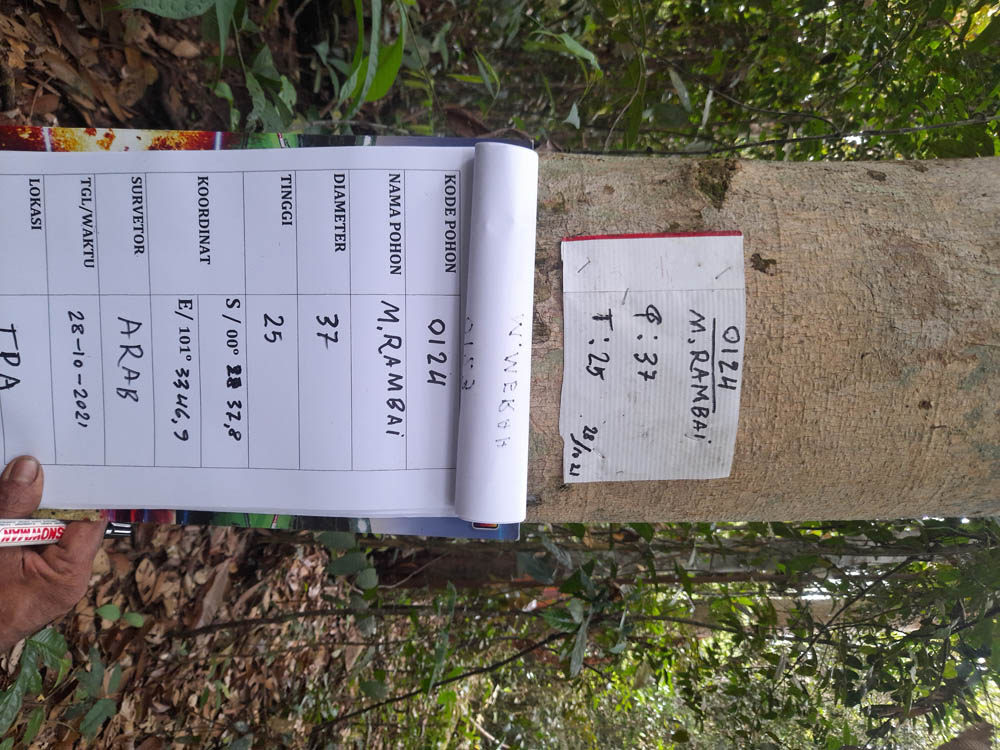 0124
M, RAMBAi
φ : 37
T : 25
28/10 21
KODE POHON 0124
NAMA POHON M, RAMBAi
DIAMETER 37
TINGGI 25
KOORDINAT
S / 00° 28 37,8
E/ 101° 33 46,9
SURVETOR ARAB
TGL/WAKTU 28-10-2021
LOKASI TPA